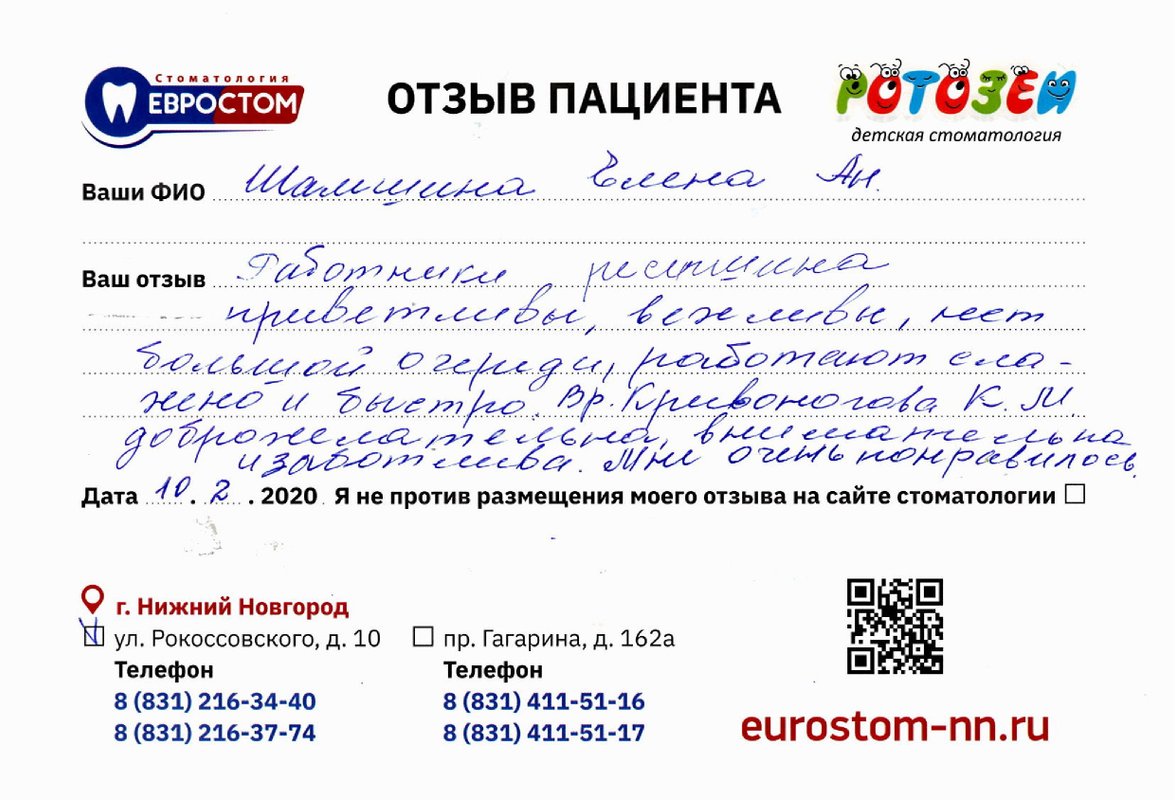 Стоматология
ЕВРОСТОМ
ОТЗЫВ ПАЦИЕНТА
РОТОЗЕЙ
детская стоматология
Ваши ФИО Шамшина Елена Ан.
Ваш отзыв Работники ресепшина
приветливы, вежливы, нет
большой очереди, работают сла-
жено и быстро. Вр. Кривоногова К. М.
доброжелательна, внимательна
и заботлива. Мне очень понравилось.
Дата 10. 2. 2020 Я не против размещения моего отзыва на сайте стоматологии
г. Нижний Новгород
ул. Рокоссовского, д. 10 пр. Гагарина, д. 162а
Телефон Телефон
8 (831) 216-34-40 8 (831) 411-51-16
8 (831) 216-37-74 8 (831) 411-51-17
eurostom-nn.ru